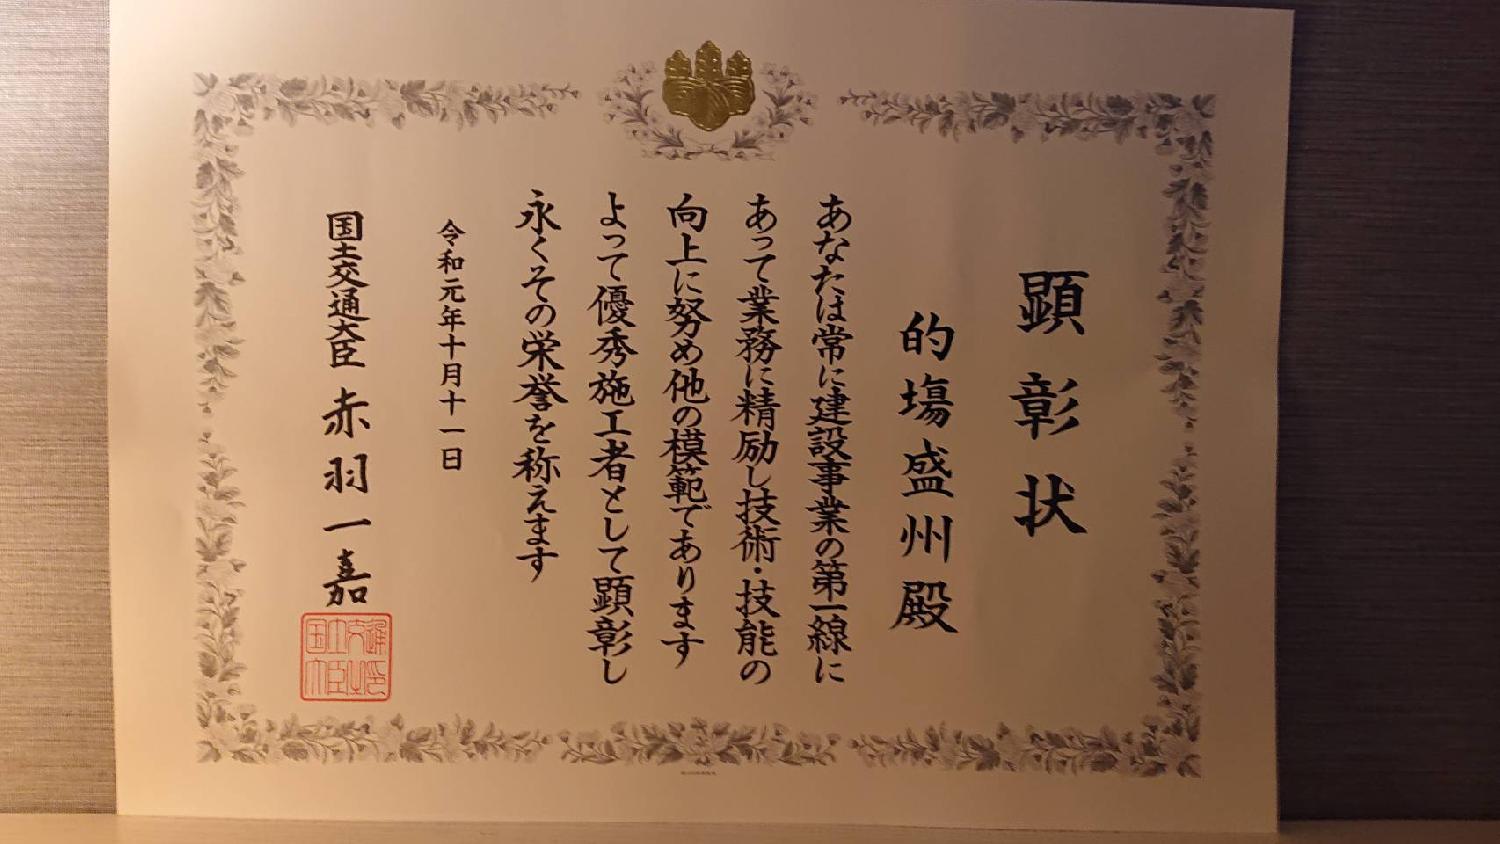 顕彰状
的場盛州殿
あなたは常に建設事業の第一線に
あって業務に精励し技術・技能の
向上に努め他の模範であります
よって優秀施工者として顕彰し
永くその栄誉を称えます
令和元年十月十一日
国土交通大臣 赤羽一嘉
国土交通大臣之印